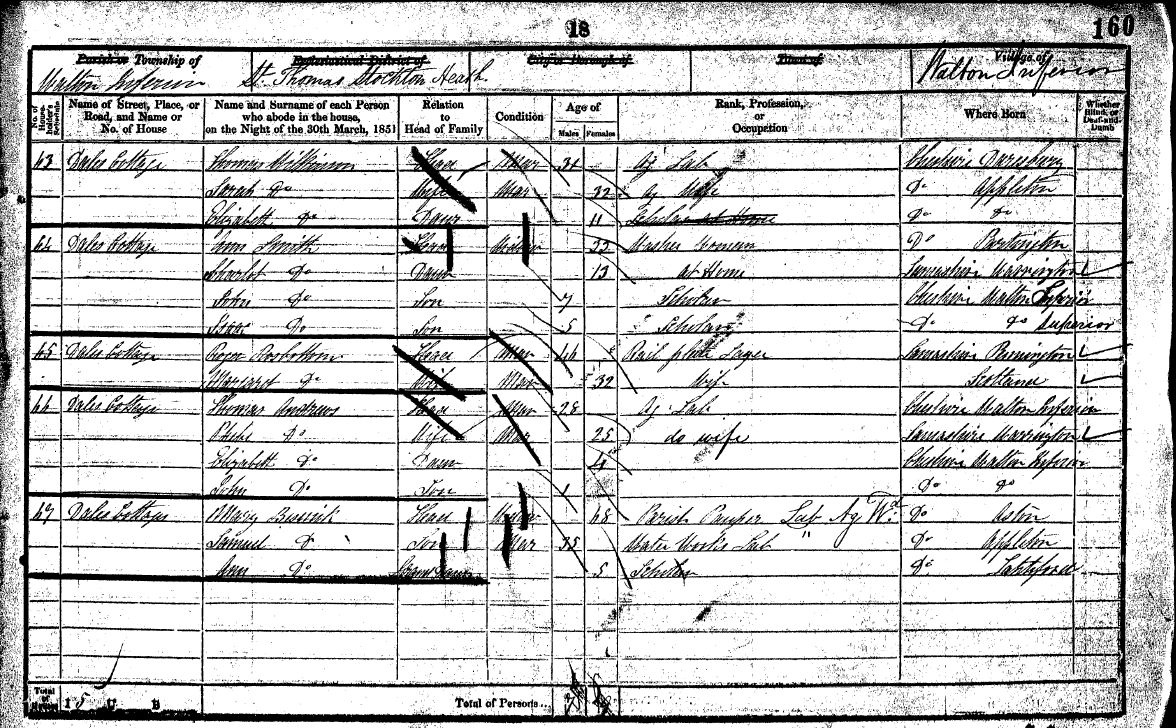 18
160
Parish or Township of Ecclesiastical District of City or Borough of Town of Village of
Walton Inferior St. Thomas Stockton Heath Walton Inferior
No. of House-holder's Schedule Name of Street, Place, or Road, and Name or No. of House Name and Surname of each Person who abode in the house, on the Night of the 30th March, 1851 Relation to Head of Family Condition Age of Males Females Rank, Profession, or Occupation Where Born Whether Blind, or Deaf-and-Dumb
63 Dales Cottage Thomas Wilkinson Head Mar 34 Ag Lab Cheshire Daresbury
Sarah Do Wife Mar 32 Ag Wife Do Appleton
Elizabeth Do Daur 11 Scholar at Home Do Do
64 Dales Cottage Ann Smith Head Widow 33 Washer Woman Do Partington
Charlot Do Daur 13 at Home Lancashire Warrington
John Do Son 7 Scholar Cheshire Walton Inferior
Isaac Do Son 5 " Scholar Do Do Superior
65 Dales Cottage Rosbottom Head Mar 44 Rail plate Layer Lancashire Pennington
Margaret Do Wife Mar 32 Wife Scotland
66 Dales Cottage Thomas Andrews Head Mar 28 Ag Lab Cheshire Walton Inferior
Do Wife Mar 25 do wife Lancashire Warrington
Elizabeth Do Daur 4 Cheshire Walton Inferior
John Do Son 1 Do Do
67 Dales Cottage Mary Head Widow 68 Parish Pauper Lab Ag Wd. Do Aston
Samuel Do Son Mar 35 Water Works Lab " Do Appleton
Ann Do Grand Daur 5 Scholar Do
Total of Houses I 5 U B Total of Persons...